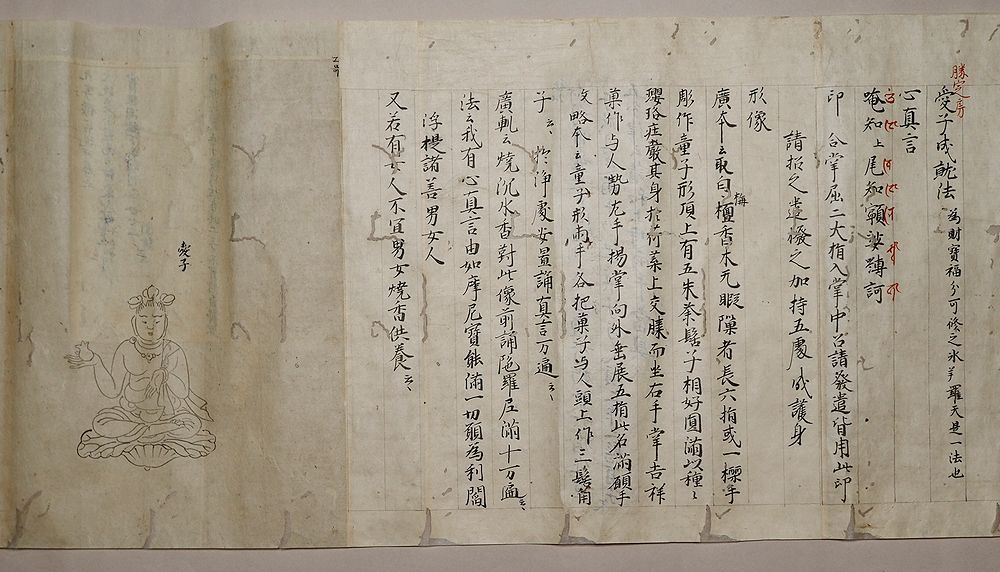 勝定房
愛子成就法 為財寶福分可修之氷羊羅天是一法也
心真言
唵知上尾知娑訶
印 合掌屈二大指入掌中召請發遣皆用此印
請招之遣撥之加持五處成護身
形像
廣本云取白檀香木元瑕隟者長六指或一手
梅
彫作童子形頂上有五朱茶髻子相好圓滿以種〻
瓔珞庄嚴其身於荷葉上交膝而坐右手掌吉祥
菓作与人勢左手揚掌向外垂展五指此名滿願手
文略本云童子形兩手各把菓子与人頭上作三髻角
子云〻 於浄處安置誦真言万遍云〻
廣軌云燒沉水香對此像前誦陁羅尼滿十万遍云〻
法云我有心真言由如摩尼寶能滿一切願為利閻
浮提諸善男女人
又若有女人不宜男女燒香供養云〻
愛子